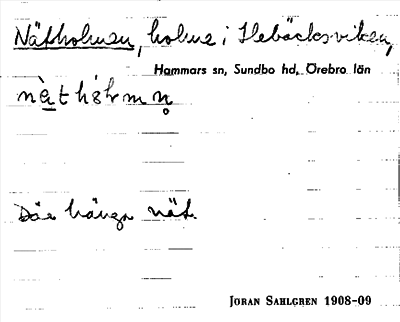 Nätholmen, holme i Hebäcksviken,
Hammars sn, Sundbo hd, Örebro län
nä̀t hól m n̥
Där hänga nät.
JÖRAN SAHLGREN 1908-09